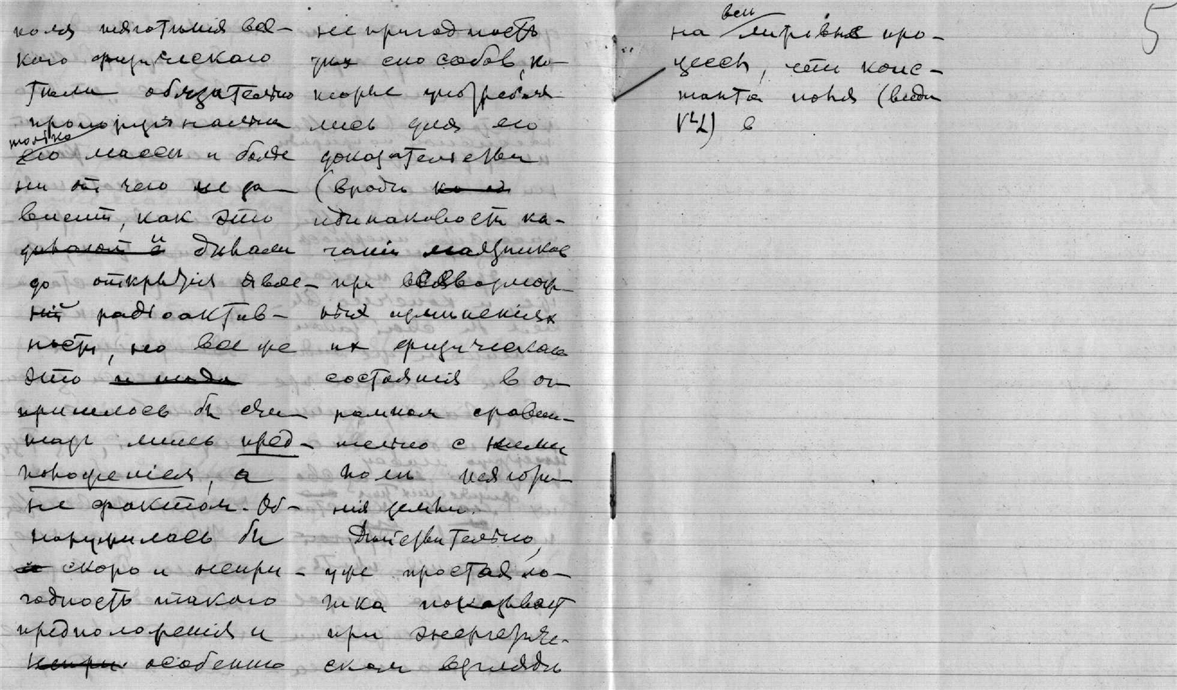 поля тяготенія вся-
кого физическаго
тѣла обязательно
пропорціональна
только
его массы и болѣе
ни отъ чего не за-
виситъ, какъ это
думали
до открытія явле-
ній радіоактив-
ности, но все же
это
пришлось бы счи-
тать лишь пред-
положенiемъ, а
не фактом. Об-
наружилась бы
скоро и непри-
годность такого
предположенія и
особенно
непригодность
тѣх способов, ко-
торые употребля-
лись для его
доказательства
(вродѣ
одинаковости ка-
чаній маятников
при всевозмож-
ных измѣненіях
их физическаго
состоянія в ог-
ромном сравни-
тельно с ними
поле тяготѣ-
нія земли.
Дѣйствительно,
уже простая ло-
гика показывает
при энергетиче-
ском взглядѣ
на про-
цессы, что конс-
танта поля (види
) в
5